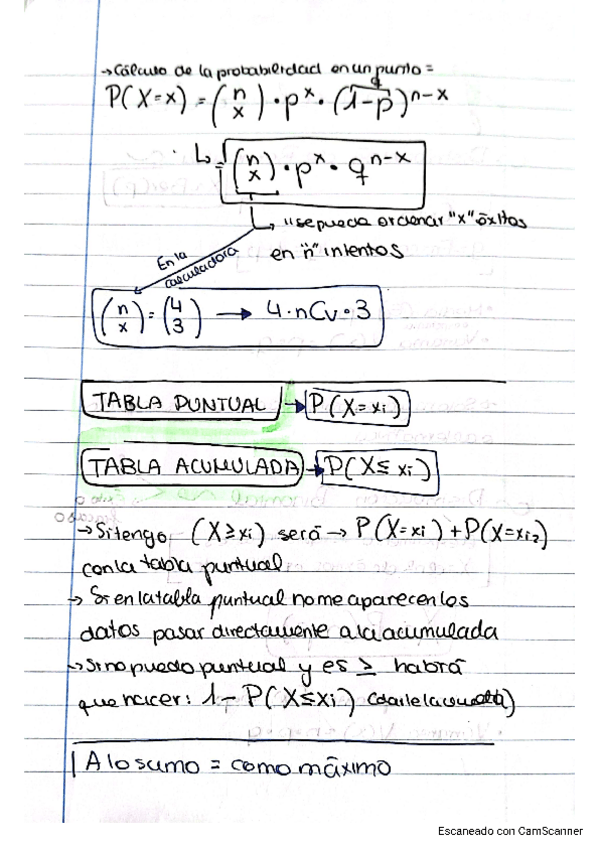 → Cálculo de la probabilidad en un punto =
P(X=x) = (n x) · p^x · (1-p)^n-x
q
↳ = (n x) · p^x · q^n-x
↳ "se pueda ordenar "x" éxitos
en "n" intentos
En la calculadora
(n x) = (4 3) → 4 · nCr · 3
TABLA PUNTUAL → P(X=xi)
TABLA ACUMULADA → P(X≤xi)
→ Si tengo (X≥xi) será → P(X=xi) + P(X=xi2)
con la tabla puntual
→ Si en la tabla puntual no me aparecen los
datos pasar directamente a la acumulada
→ Si no puedo puntual y es ≥ habrá
que hacer: 1 - P(X≤xi) (darle la vuelta)
A lo sumo = como máximo
Escaneado con CamScanner